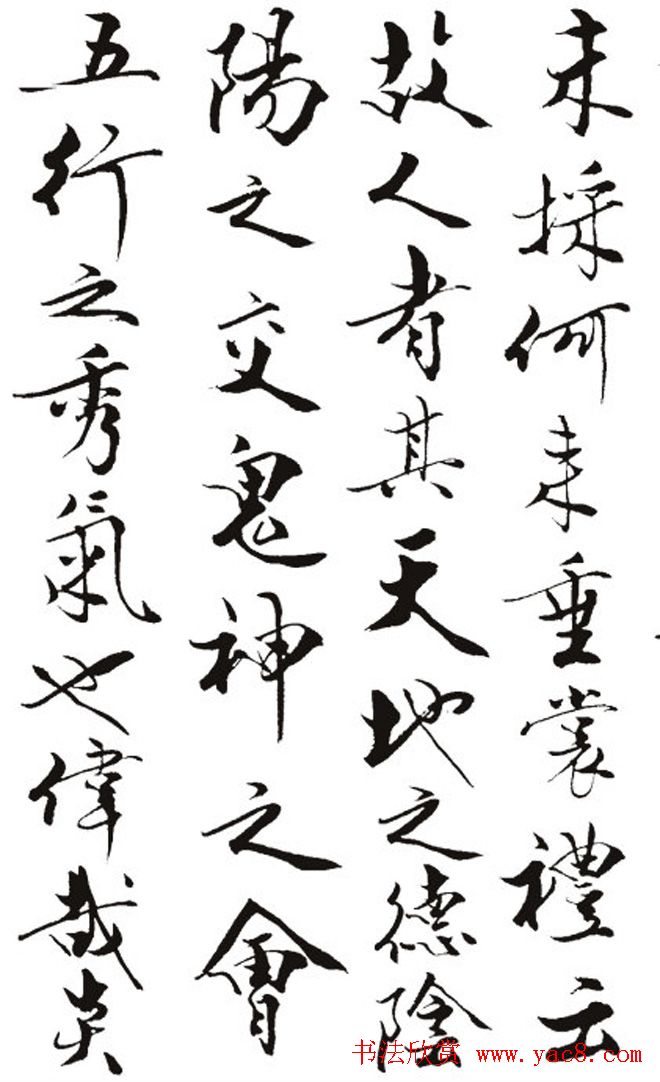 未採何未垂裳禮云
故人者其天地之德陰
陽之交鬼神之會
五行之秀氣也偉哉炎
书法欣赏 www.yac8.com